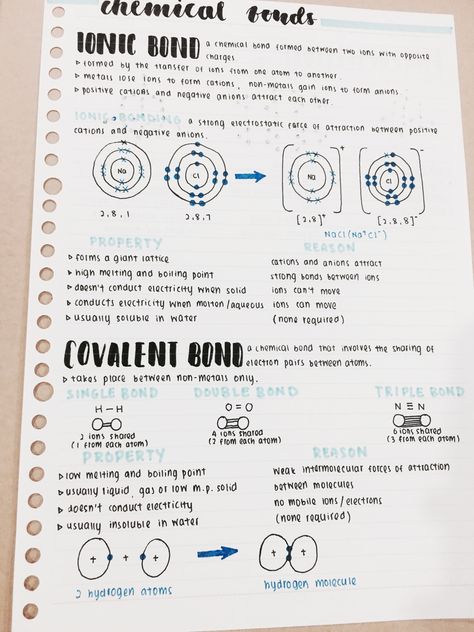 chemical bonds
IONIC BOND a chemical bond formed between two ions with opposite
charges
▹ formed by the transfer of ions from one atom to another.
▹ metals lose ions to form cations, non-metals gain ions to form anions.
▹ positive cations and negative anions attract each other.
IONIC BONDING a strong electrostatic force of attraction between positive
cations and negative anions.
Na Cl Na + Cl -
2,8,1 2,8,7 [2,8]⁺ [2,8,8]⁻
NaCl (Na⁺Cl⁻)
PROPERTY REASON
▹ forms a giant lattice cations and anions attract
▹ high melting and boiling point strong bonds between ions
▹ doesn't conduct electricity when solid ions can't move
▹ conducts electricity when molton/aqueous ions can move
▹ usually soluble in water (none required)
COVALENT BOND a chemical bond that involves the sharing of
electron pairs between atoms.
▹ takes place between non-metals only.
SINGLE BOND DOUBLE BOND TRIPLE BOND
H-H O=O N≡N
2 ions shared 4 ions shared 6 ions shared
(1 from each atom) (2 from each atom) (3 from each atom)
PROPERTY REASON
▹ low melting and boiling point weak intermolecular forces of attraction
▹ usually liquid, gas or low m.p. solid between molecules
▹ doesn't conduct electricity no mobile ions/electrons
▹ usually insoluble in water (none required)
+ + + +
2 hydrogen atoms hydrogen molecule